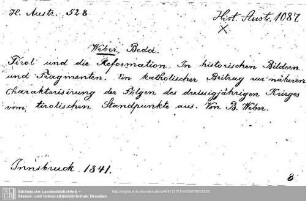 H. Austr. 528
Hist. Austr. 1087
X
Weber, Beda.
Tirol und die Reformation. In historischen Bildern
und Fragmenten. Ein katholischer Beitrag zur näheren
Charakterisirung der Folgen des dreissigjährigen Krieges
vom tirolischen Standpunkte aus. Von B. Weber.
Innsbruck. 1841.
8